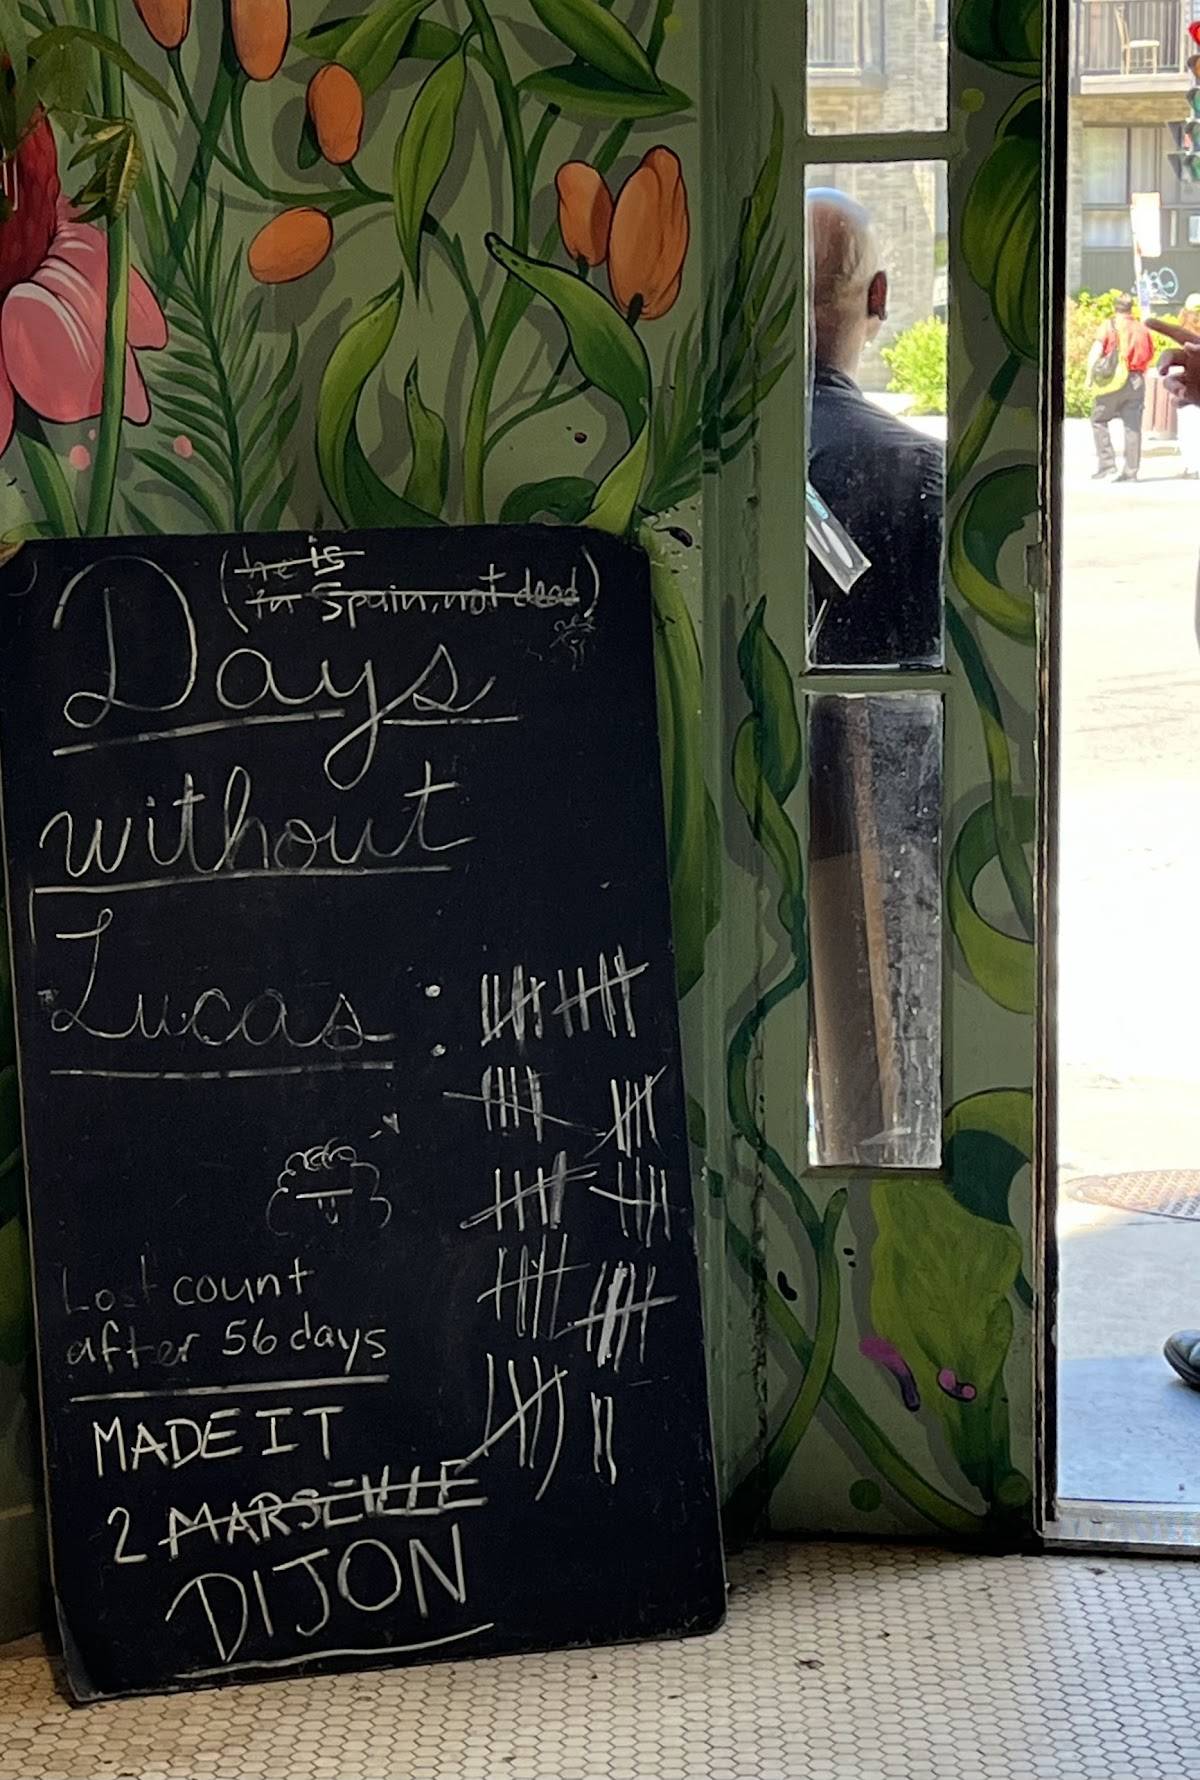 (he is
in Spain, not dead)
Days
without
Lucas :
Lost count
after 56 days
MADE IT
2 MARSEILLE
DIJON